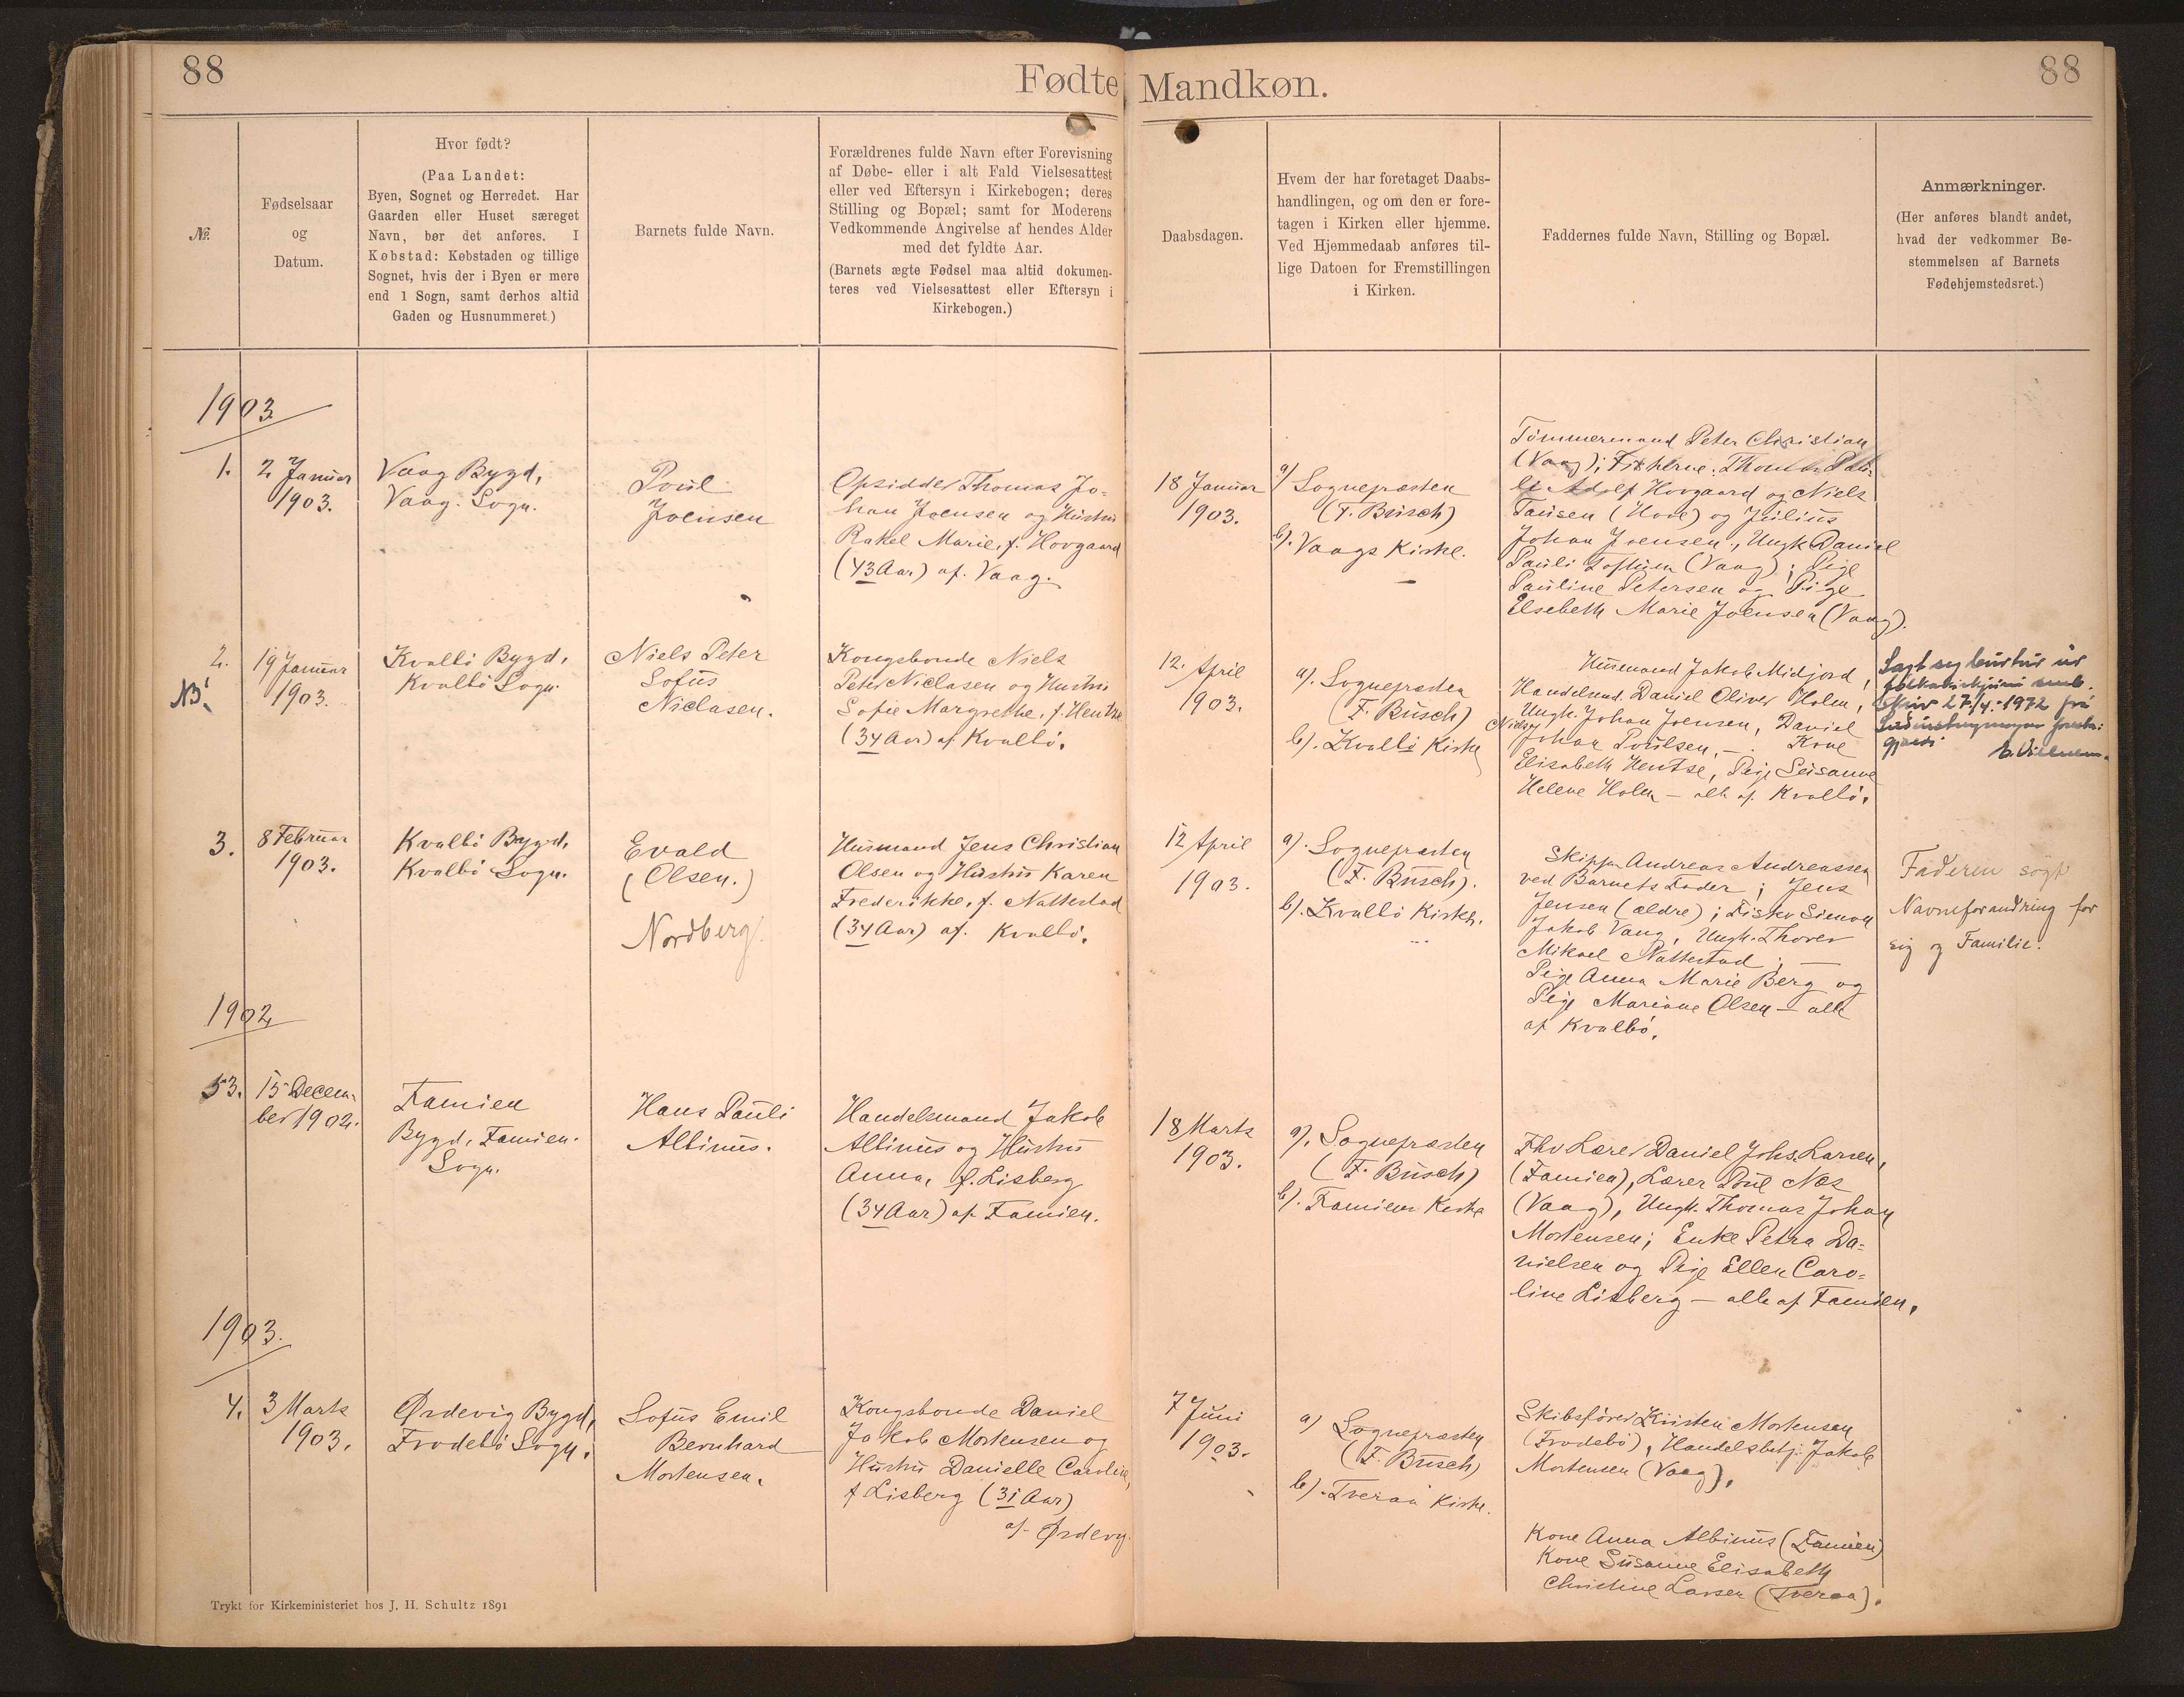 88
Fødte Mandkøn.
88
№.
Fødselsaar
og
Datum.
Hvor født?
(Paa Landet:
Byen, Sognet og Herredet. Har
Gaarden eller Huset særeget
Navn, bør det anføres. I
Købstad: Købstaden og tillige
Sognet, hvis der i Byen er mere
end 1 Sogn, samt derhos altid
Gaden og Husnummeret.)
Barnets fulde Navn.
Forældrenes fulde Navn efter Forevisning
af Døbe- eller i alt Fald Vielsesattest
eller ved Eftersyn i Kirkebogen; deres
Stilling og Bopæl; samt for Moderens
Vedkommende Angivelse af hendes Alder
med det fyldte Aar.
(Barnets ægte Fødsel maa altid dokumen-
teres ved Vielsesattest eller Eftersyn i
Kirkebogen.)
Daabsdagen.
Hvem der har foretaget Daabs-
handlingen, og om den er fore-
tagen i Kirken eller hjemme.
Ved Hjemmedaab anføres til-
lige Datoen for Fremstillingen
i Kirken.
Faddernes fulde Navn, Stilling og Bopæl.
Anmærkninger.
(Her anføres blandt andet,
hvad der vedkommer Be-
stemmelsen af Barnets
Fødehjemstedsret.)
1903
1.
2 Januar
1903.
Vaag Bygd,
Vaag. Sogn.
Poul
Joensen
Opsidder Thomas Jo-
han Joensen og Hustru
Rakel Marie, f. Hovgaard
(43 Aar) af. Vaag.
18 Januar
1903.
a) Sognepræsten
(F. Busch)
b). Vaags Kirke.
Tømmermand Peter Christian
(Vaag); Thomas
Adolf Hovgaard og Niels
Tausen (Hove) og Julius
Johan Joensen, Ungk Daniel
Pauli Toftum (Vaag); Pige
Pauline Petersen og Pige
Elsebeth Marie Joensen (Vaag).
2.
NB!
19 Januar
1903.
Kvalbö Bygd,
Kvalbö Sogn.
Niels Peter
Sofus
Niclasen.
Kongsbonde Niels
Peter Niclasen og Hustru
Sofie Margrethe, f. Hentze
(34 Aar) af Kvalbö.
12. April
1903.
a). Sognepræsten
(F. Busch)
b). Kvalbö Kirke
Husmand Jakob Midjord,
Handelsmd. Daniel Oliver Holm,
Ungk. Johan Joensen, Daniel
Niels
Johan Poulsen, — . Kone
Elisabeth Hentse, Pige Susanne
Helene Holm — alle af Kvalbö.
Sagt seg burtur úr
fólkakirkjuni smb.
skriv 27/4.-1972 frá
Suðuroyar
3.
8 Februar
1903.
Kvalbö Bygd,
Kvalbö Sogn.
Evald
(Olsen.)
Nordberg.
Husmand Jens Christian
Olsen og Hustru Karen
Frederikke, f. Nattestad
(34 Aar) af. Kvalbö.
12 April
1903.
a). Sognepræsten
(F. Busch).
b). Kvalbö Kirke.
Skipper Andreas Andreassen
ved Barnets Fader; Jens
Jensen (ældre); Fisker Simon
Jakob Vang, Ungk. Thorer
Mikael Nattestad; —
Pige Anna Marie Berg og
Pige Mariane Olsen — alle
af Kvalbö.
Faderen søgt
Navneforandring for
sig og Familie.
1902
53.
15 Decem-
ber 1902.
Famien
Bygd, Famien.
Sogn.
Hans Pauli
Albinus.
Handelsmand Jakob
Albinus og Hustru
Anna, f. Lisberg
(34 Aar) af Famien.
18 Marts
1903.
a). Sognepræsten
(F. Busch)
b). Famiens Kirke
Fhv Lærer Daniel Johs. Larsen,
(Famien), Lærer Poul Næs
(Vaag), Ungk. Thomas Johan
Mortensen; Enke Petra Da-
nielsen og Pige Ellen Caro-
line Lisberg — alle af Famien.
1903.
4.
3 Marts
1903.
Ørdevig Bygd,
Frodebö Sogn.
Sofus Emil
Bernhard
Mortensen.
Kongsbonde Daniel
Jakob Mortensen og
Hustru Danielle Caroline,
f Lisberg (31 Aar)
af Ørdevig.
7 Juni
1903.
a) Sognepræsten
(F. Busch)
b). Tveraa Kirke.
Skibsfører Kristen Mortensen
(Frodebö), Handelsbetj. Jakob
Mortensen (Vaag),
Kone Anna Albinus (Famien)
Kone Susanne Elisabeth
Christine Larsen (Tveraa).
Trykt for Kirkeministeriet hos J. H. Schultz 1891